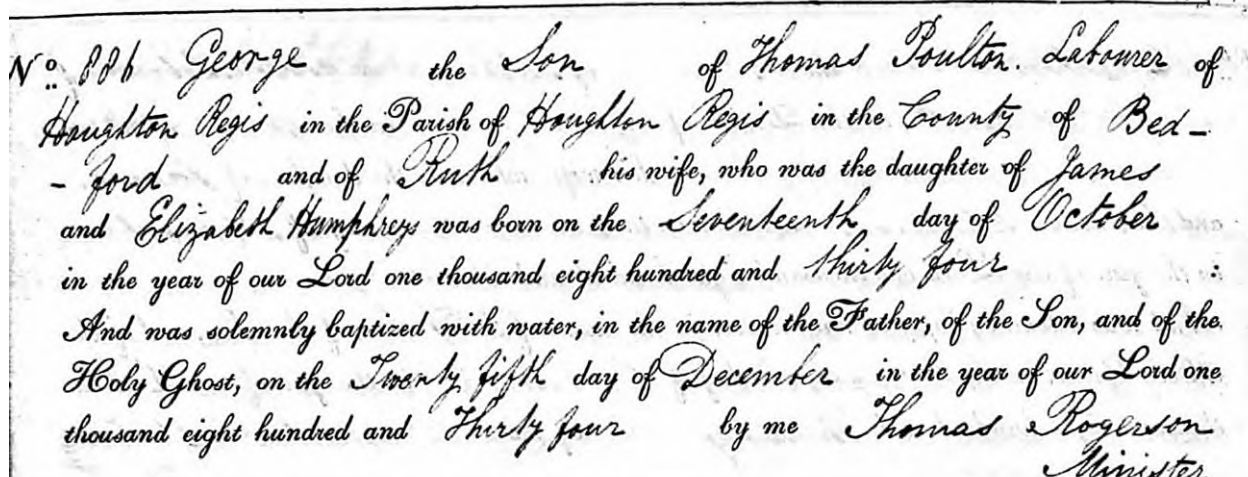 No. 886 George the Son of Thomas Poulton. Labourer of
Houghton Regis in the Parish of Houghton Regis in the County of Bed-
- ford and of Ruth his wife, who was the daughter of James
and Elizabeth Humphreys was born on the Seventeenth day of October
in the year of our Lord one thousand eight hundred and thirty four :
And was solemnly baptized with water, in the name of the Father, of the Son, and of the
Holy Ghost, on the Twenty fifth day of December in the year of our Lord one
thousand eight hundred and Thirty four by me Thomas Rogerson
Minister